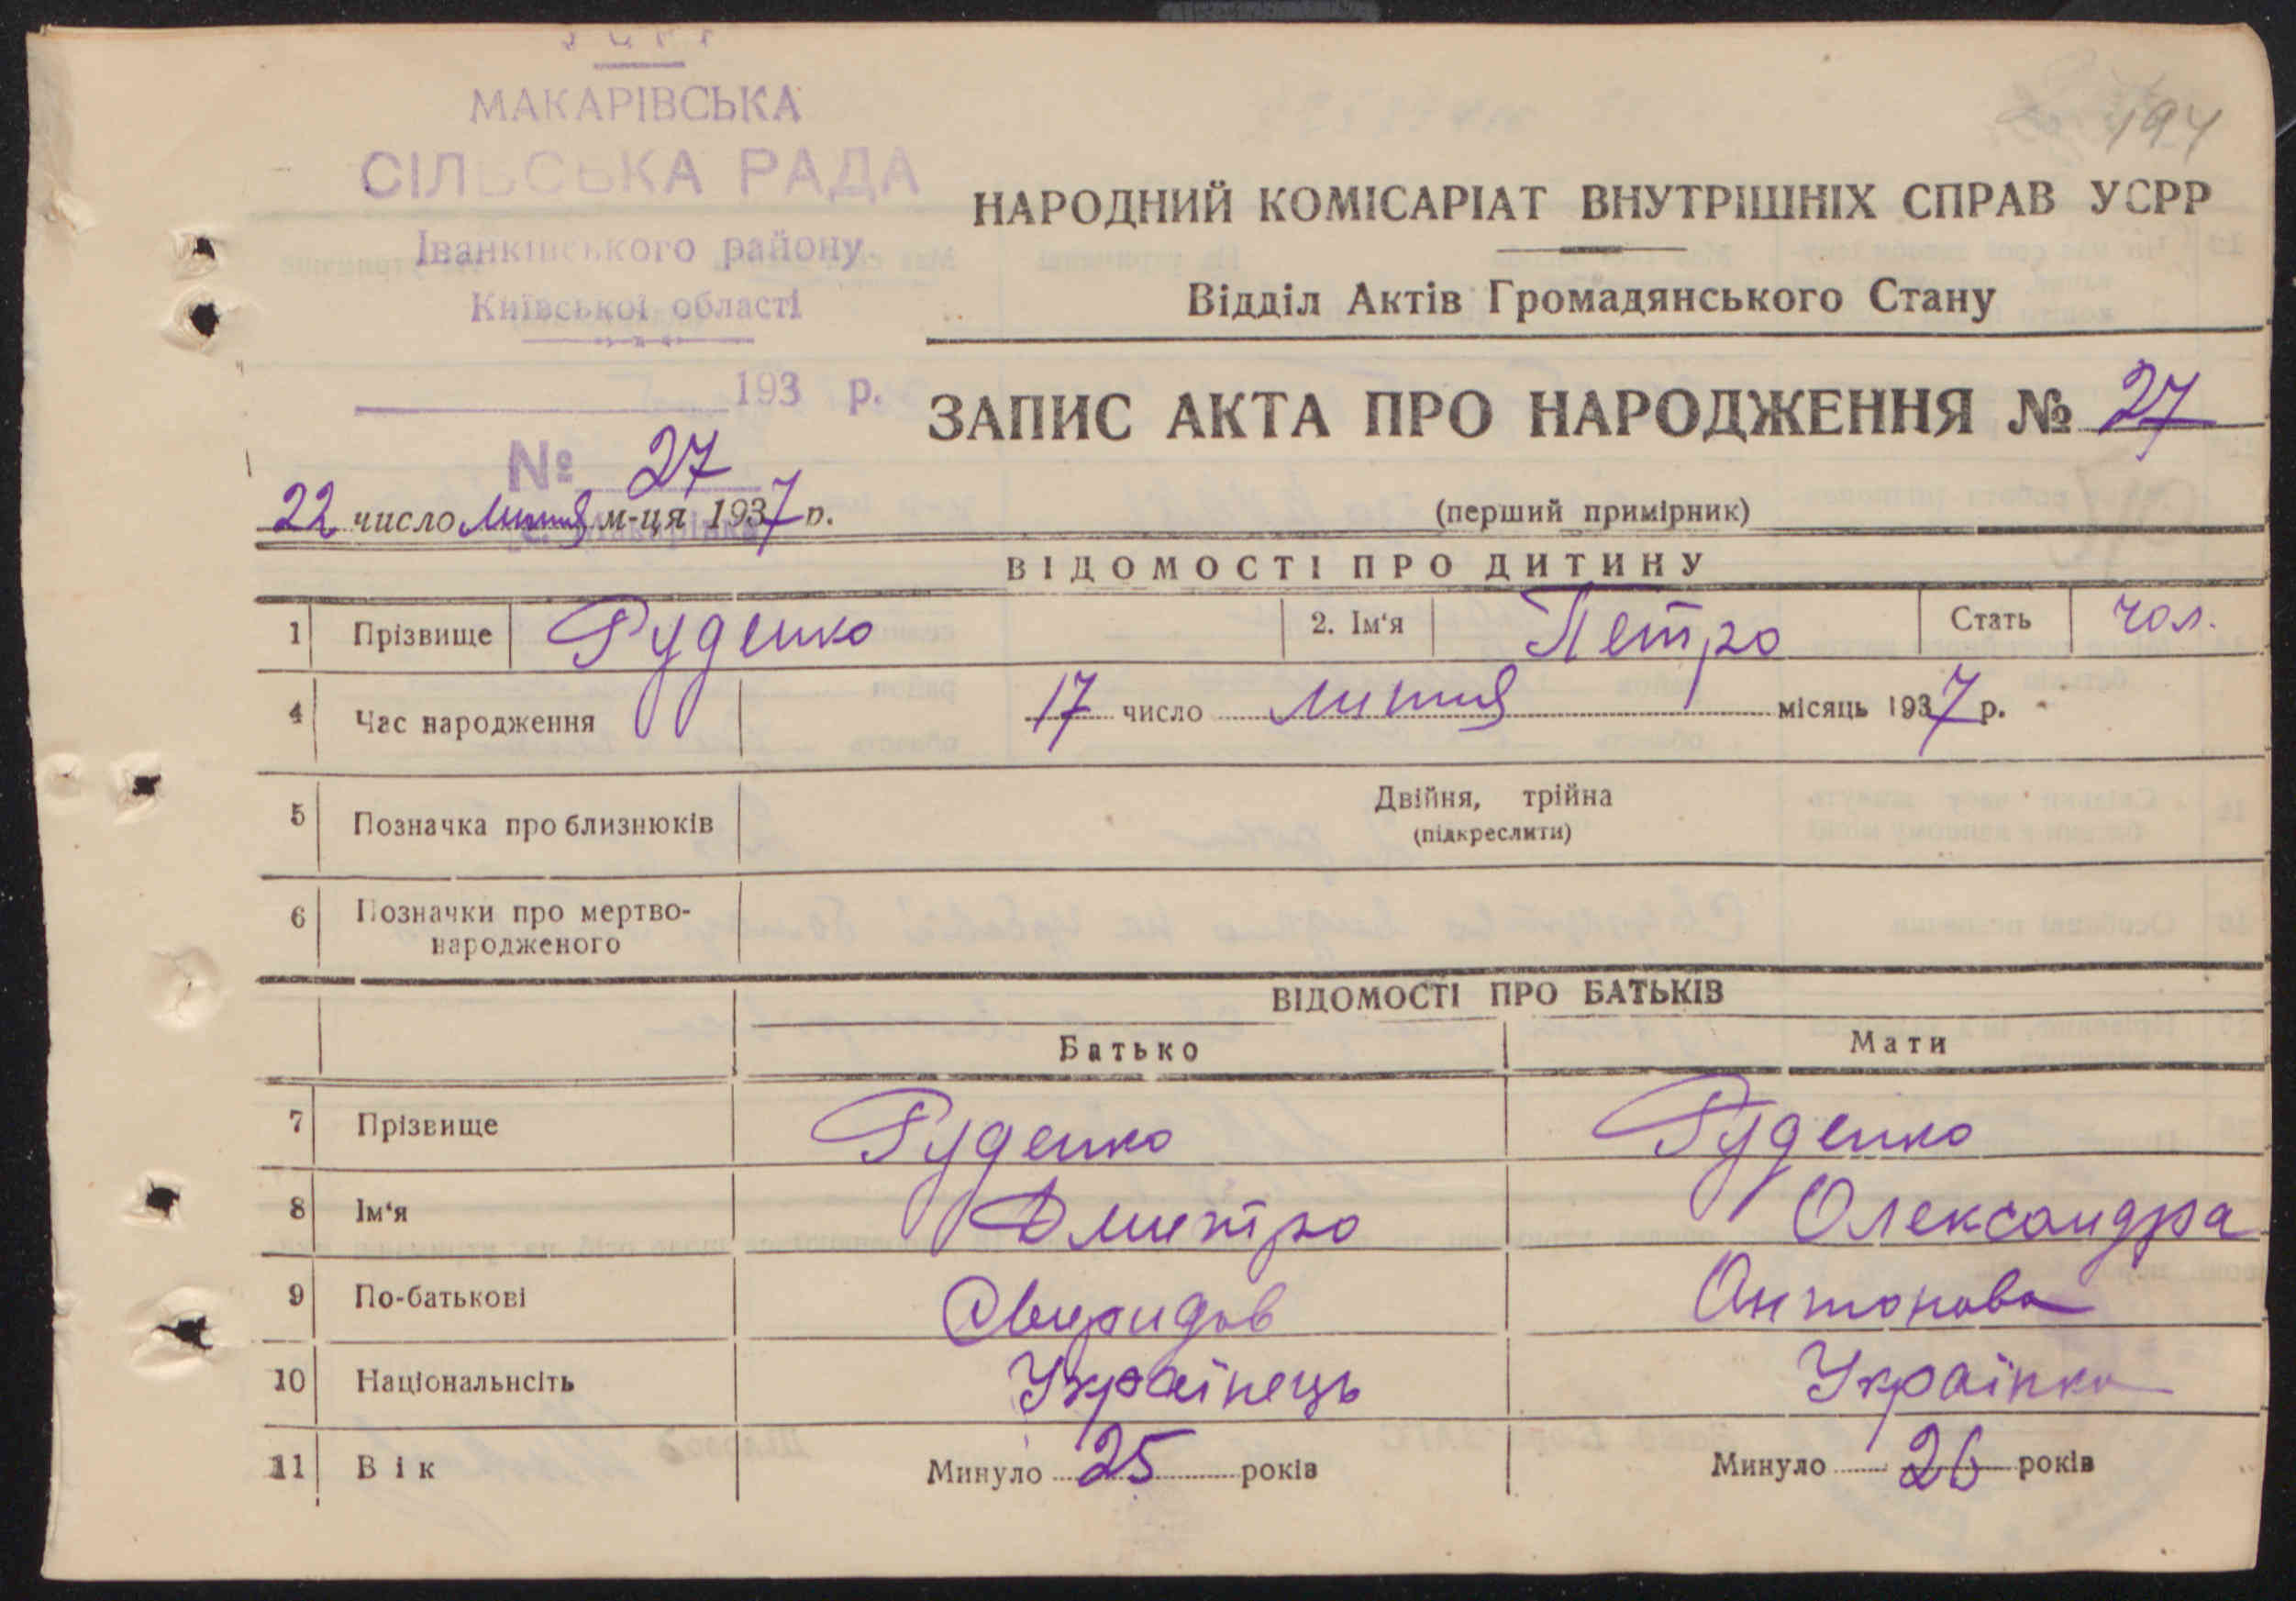 МАКАРІВСЬКА
СІЛЬСЬКА РАДА
Іванківського району
Київської області
193 р.
№ 27
с. Макарівка
194
НАРОДНИЙ КОМІСАРІАТ ВНУТРІШНІХ СПРАВ УСРР
Відділ Актів Громадянського Стану
ЗАПИС АКТА ПРО НАРОДЖЕННЯ № 27
22 число липня м-ця 1937 р.
(перший примірник)
ВІДОМОСТІ ПРО ДИТИНУ
1 Прізвище Руденко 2. Ім'я Петро Стать чол.
4 Час народження 17 число липня місяць 1937 р.
5 Позначка про близнюків Двійня, трійна
(підкреслити)
6 Позначки про мертво-
народженого
ВІДОМОСТІ ПРО БАТЬКІВ
Батько Мати
7 Прізвище Руденко Руденко
8 Ім'я Дмитро Олександра
9 По-батькові Свиридов Антонова
10 Національнсіть Українець Українка
11 Вік Минуло 25 років Минуло 26 років